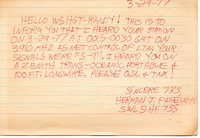 3-29-77
HELLO WS HST-RANDY! THIS IS TO
INFORM YOU THAT I HEARD YOUR STATION
ON 3-29-77 AT 0015-0030 GMT ON
3940 KHZ AS NET CONTROL OF YOUR
SIGNALS WERE "5-7". I HEARD YOU ON
A ZENITH TRANS-OCEANIC PORTABLE &
100 FT. LONGWIRE. PLEASE QSL & TNX!
SINCERE 73'S
HERMAN J.
SWL 5HF 735